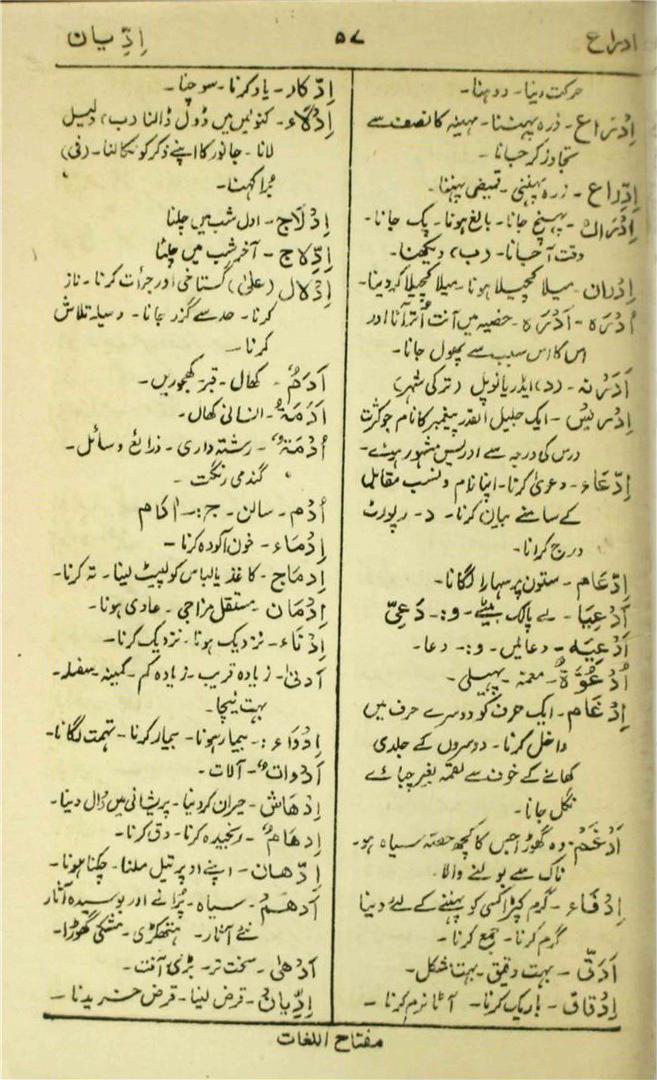 ادراع
۵۷
اِدِّیان
حرکت دینا۔ دوہنا۔
اِدْرَاع۔ زرہ پہننا۔ مہینہ کا نصف سے
تجاوز کر جانا۔
اِدِّراع۔ زرہ پہننی۔ قمیض پہننا۔
اِدْرَاك۔ پہنچ جانا۔ بالغ ہونا۔ پک جانا۔
وقت آ جانا۔ (ب) دیکھنا۔
اِدْرَان۔ میلا کچیلا ہونا۔ میلا کچیلا کر دینا۔
اُدْرَہ۔ اَدَرَہ۔ خصیہ میں آنت اُتر آنا اور
اس کا اس سبب سے پھول جانا۔
اَدَرْنہ۔ (د) ایڈریانوپل (ترکی شہر)
اِدْرِیْس۔ ایک جلیل القدر پیغمبر کا نام جو کثرت
درس کی وجہ سے ادریس مشہور ہوئے۔
اِدِّعَاء۔ دعویٰ کرنا۔ اپنا نام و نسب مقابل
کے سامنے بیان کرنا۔ د۔ رپورٹ
درج کرانا۔
اِدِّعَام۔ ستون پر سہارا لگانا۔
اَدْعِیَا۔ لے پالک بیٹے۔ و:۔ دَعِیّ
اَدْعِیَہ۔ دعائیں۔ و:۔ دعا۔
اُدْعُوَّۃٌ۔ معمہ۔ پہیلی۔
اِدْغَام۔ ایک حرف کو دوسرے حرف میں
داخل کرنا۔ دوسروں کے جلدی
کھانے کے خوف سے لقمہ بغیر چبائے
نگل جانا۔
اَدْغَمْ۔ وہ گھوڑا جس کا کچھ حصہ سیاہ ہو۔
ناک سے بولنے والا۔
اِدْفَاء۔ گرم کپڑا کسی کو پہننے کے لئے دینا
گرم کرنا۔ جمع کرنا۔
اَدَقّ۔ بہت دقیق۔ بہت مشکل۔
اِدْقَاق۔ باریک کرنا۔ آٹا نرم کرنا۔
اِدِّکار۔ یاد کرنا۔ سوچنا۔
اِدْلَاء۔ کنوئیں میں ڈول ڈالنا (ب) دلیل
لانا۔ جانور کا اپنے ذکر کو نکالنا۔ (فی)
بُرا کہنا۔
اِدْلَاج۔ اول شب میں چلنا
اِدِّلَاج۔ آخر شب میں چلنا
اِدْلَال (علیٰ) گستاخی اور جرأت کرنا۔ ناز
کرنا۔ حد سے گزر جانا۔ وسیلہ تلاش
کرنا۔
اَدَمٌ۔ کھال۔ قبر کھجوریں۔
اَدَمَۃٌ۔ انسانی کھال۔
اُدْمَۃٌ۔ رشتہ داری۔ ذرائع وسائل۔
گندمی رنگت۔
اُدْم۔ سالن۔ ج:۔ اٰکام
اِدْمَاء۔ خون آلودہ کرنا۔
اِدمَاج۔ کاغذ یا لباس کو لپیٹ لینا۔ تہ کرنا۔
اِدْمَان۔ مستقل مزاجی۔ عادی ہونا۔
اِدْنَاء۔ نزدیک ہونا۔ نزدیک کرنا۔
اَدنیٰ۔ زیادہ قریب۔ زیادہ کم۔ کمینہ۔ سفلہ۔
بہت نیچا۔
اِدْوَاء:۔ بیمار ہونا۔ بیمار کرنا۔ تہمت لگانا۔
اَدَوات۔ آلات۔
اِدْھَاش۔ حیران کر دینا۔ پریشانی میں ڈال دینا۔
اِدھَام۔ رنجیدہ کرنا۔ دق کرنا۔
اِدِّھان۔ اپنے اوپر تیل ملنا۔ چکنا ہونا۔
اَدھَمُ۔ سیاہ۔ پُرانے اور بوسیدہ آثار
نئے آثار۔ ہتھکڑی۔ مشکی گھوڑا۔
اَدْھیٰ۔ سخت تر۔ بڑی آفت۔
اِدِّیان۔ قرض لینا۔ قرض خریدنا۔
مفتاح اللغات